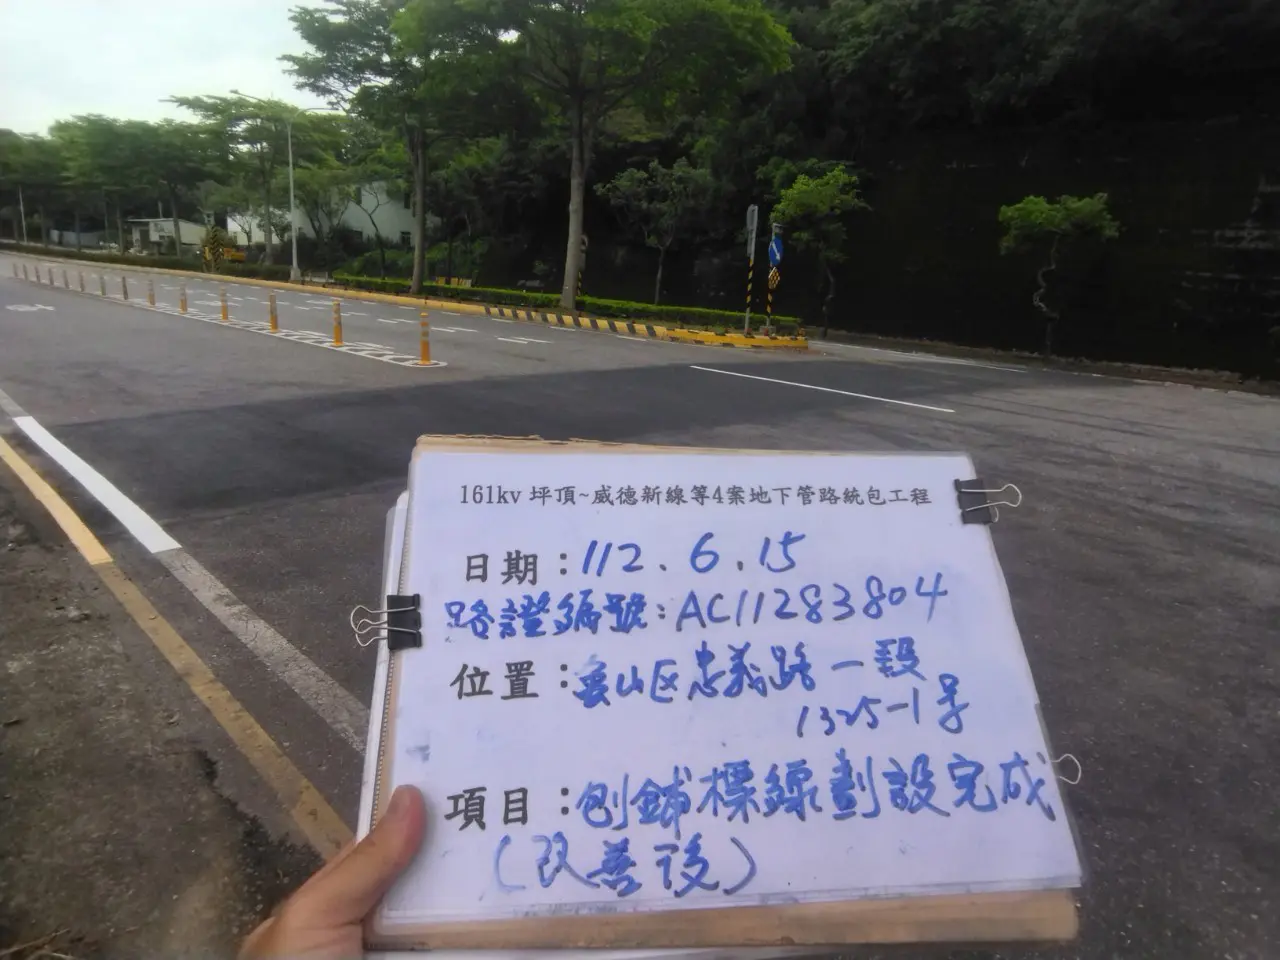 161kv 坪頂~威德新線等4案地下管路統包工程
日期：112.6.15
路證編號：AC11283804
位置：龜山区忠義路一段
1325-1号
項目：刨鋪標線劃設完成
(改善後)